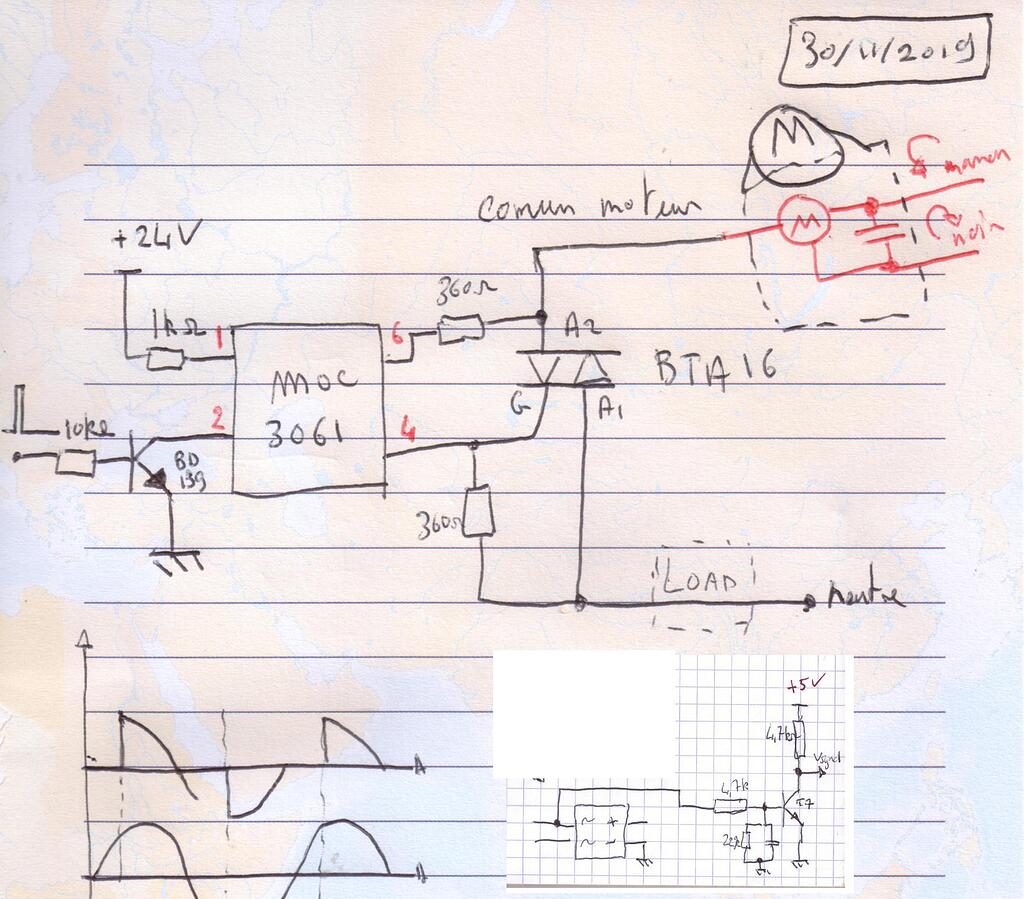 30/11/2019
M
marron
M
noir
comun moteur
+24V
360Ω
1kΩ
1
6
A2
MOC
3061
BTA16
G
A1
2
4
10kΩ
BD
139
360Ω
LOAD
neutre
+5V
4,7kΩ
Vsignal
4,7k
~ +
~ -